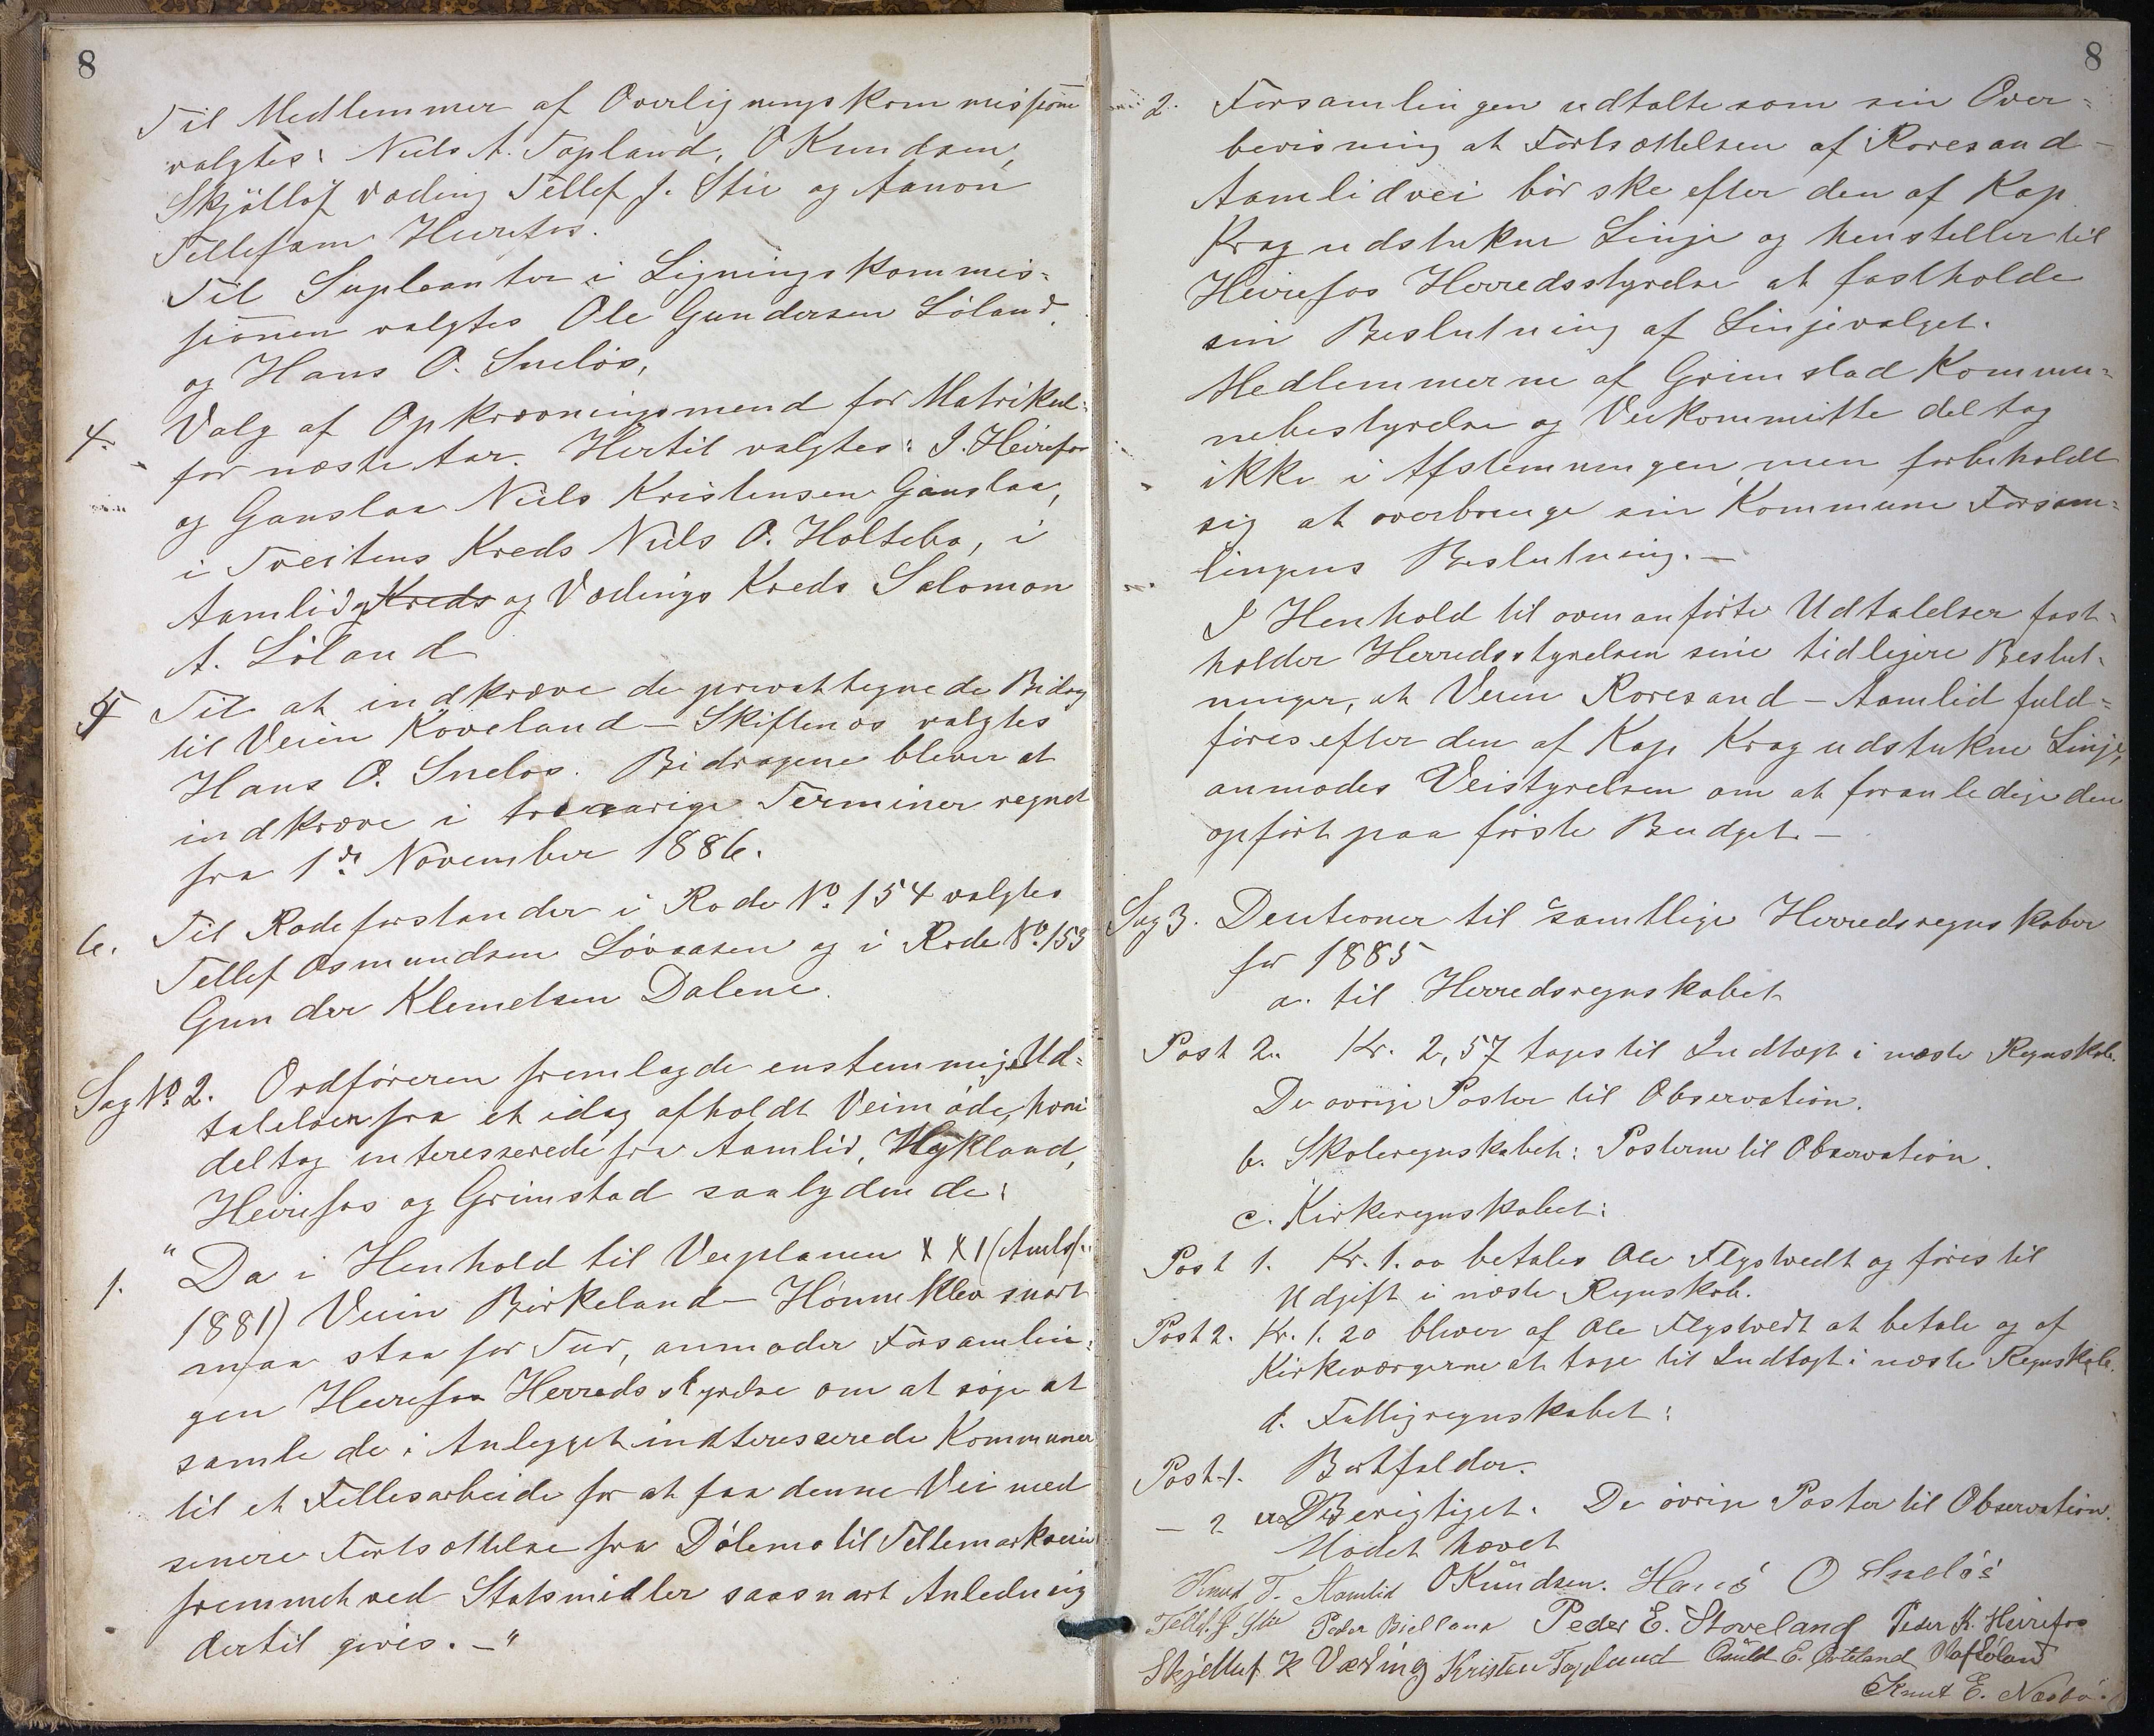 8
Til Medlemmer af Overligningskommissionen
valgtes: Niels A. Topland, O Knudsen,
Skjöllof Væding Tellef J. Stie og Aanon
Tellefsen Heirefos.
Til Supleanter i Ligningskommis-
sionen valgtes Ole Gundersen Löland,
og Hans O. Sneløs,
4. Valg af Opkrævningsmænd for Matrikul-
for næste Aar. Hertil valgtes: I. Heirefos
og Gauslaa Niels Kristensen Gauslaa,
i Tveitens Kreds Niels O. Holtebo, i
Aamlid og Kreds og Vædings Kreds Salomon
A. Löland
5 Til at indkræve de privattegnede Bidrag
til Veien Köveland - Skiftenes valgtes
Hans O. Sneløs. Bidragene bliver at
indkræve i treaarige Terminer regnet
fra 1de November 1886.
6. Til Rodeforstander i Rode No. 154 valgtes
Tellef Osmundsen Lövaasen og i Rode No. 153
Gunder Klemetsen Dalene.
Sag No. 2. Ordföreren fremlagde enstemmige Ud-
talelser fra et idag afholdt Veimöde, hvori
deltog interesserede fra Aamlid, Mykland,
Heirefos og Grimstad saalydende:
1. "Da i Henhold til Veiplanen XXI (Amtsf.
1881) Veien Birkeland - Hönneklev snart
maa staa for Tur, anmoder Forsamlin-
gen Heirefos Herredsstyrelse om at söge at
samle de i Anlegget indteresserede Kommuner
til et Fellesarbeide for at faa denne Vei med
senere Fortsættelse fra Dölemo til Tellemarksveien
fremmet ved Statsmidler saasnart Anledning
dertil gives. -"
8
2. Forsamlingen udtalte som sin Over-
bevisning at Fortsættelsen af Roresand -
Aamlidvei bör ske efter den af Kap.
Krag udstukne Linje og henstiller til
Heirefos Herredsstyrelse at fastholde
sin Beslutning af Linjevalget.
Medlemmerne af Grimstad Kommu-
nebestyrelse og Veikommitte deltog
ikke i Afstemningen, men forbeholdt
sig at overbringe sin Kommune Forsam-
lingens Beslutning. -
I Henhold til ovenanförte Udtalelser fast-
holder Herredsstyrelsen sine tidligere Beslut-
ninger, at Veien Roresand - Aamlid fuld-
föres efter den af Kap Krag udstukne Linje,
anmodes Veistyrelsen om at foranledige den
opfört paa förste Budget. -
Sag 3. Desisioner til samtlige Herredsregnskaber
for 1885
a. til Herredsregnskabet
Post 2. Kr. 2,57 tages til Indtægt i næste Regnskab.
De övrige Poster til Observation.
b. Skoleregnskabet: Posterne til Observation.
c. Kirkeregnskabet:
Post 1. Kr. 1.00 betales Ole Flystvedt og föres til
Udgift i næste Regnskab.
Post 2. Kr. 1.20 bliver af Ole Flystvedt at betale og af
Kirkeværgerne at tage til Indtægt i næste Regnskab.
d. Fattigregnskabet:
Post 1. Bortfalder.
- 2 er Berigtiget. De övrige Poster til Observation.
Mödet hævet
Knud T. Aamlid OKnudsen. Hans O Sneløs
Tellef J Stie Peder Bielland Peder E. Stoveland Peder K. Heirefos
Skjelluf K Væding Kristen Topland Osuld E. Löland
Knut E. Næsbø.